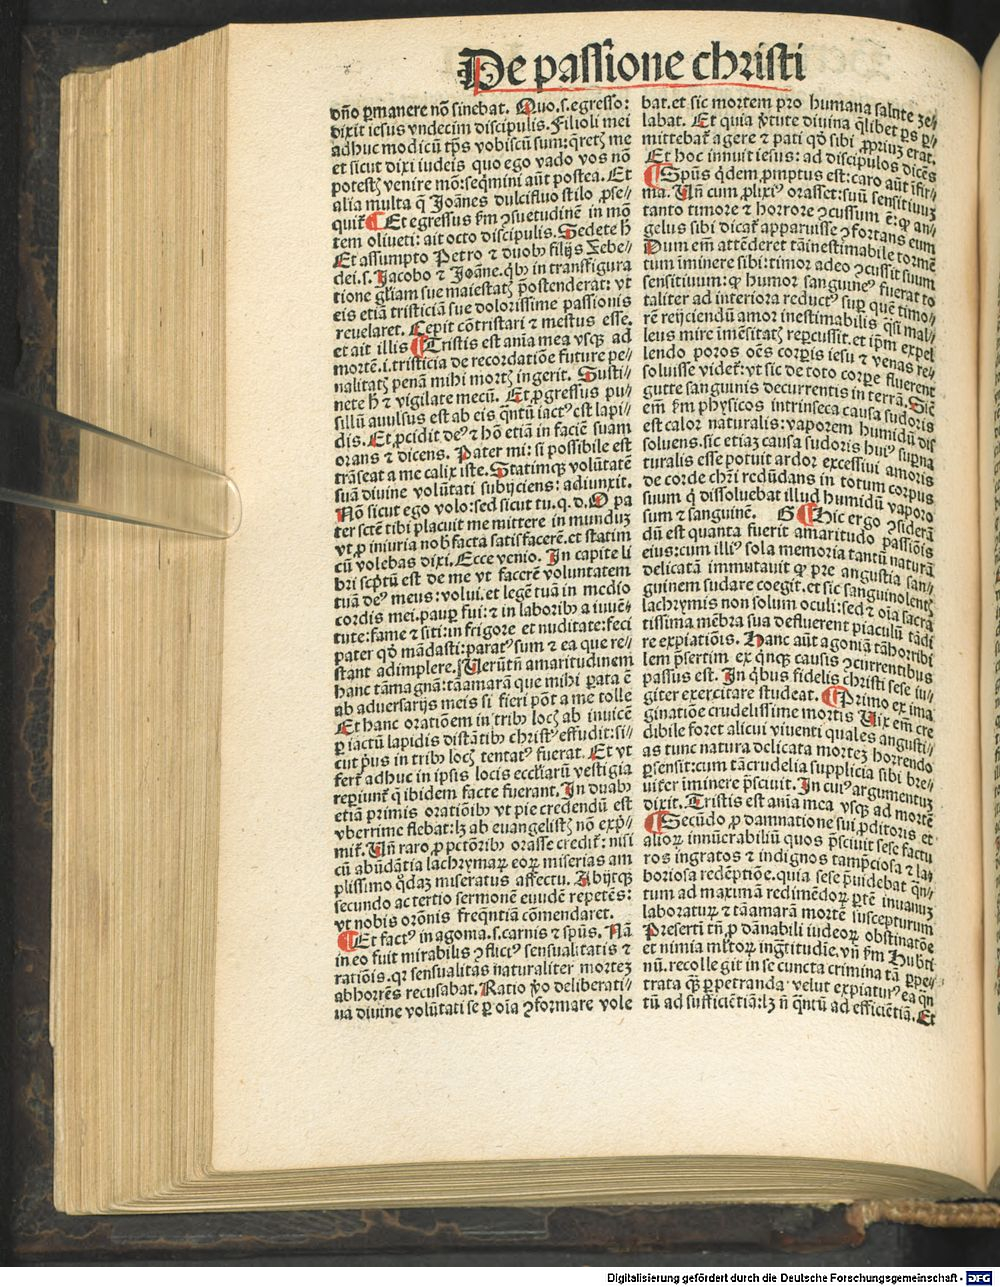 De passione christi
dño ꝑmanere nõ sinebat. Quo.s.egresso:
dixit iesus vndecim discipulis. Filioli mei
adhuc modicũ tp̃s vobiscũ sum: q̃retꝭ me
et sicut dixi iudeis quo ego vado vos nõ
potestꝭ venire mõ: seq̃mini aũt postea. Et
alia multa q̃ Joãnes dulcifluo stilo ꝓse⸗
quit᷑ ¶ Et egressus ẜm ꝯsuetudinẽ in mõ
tem oliueti: ait octo discipulis. Sedete h̃
Et assumpto Petro ⁊ duobꝰ filijs Zebe⸗
dei.s. Jacobo ⁊ Joãne. qͥbꝰ in transfigura
tione gl̃iam sue maiestatꝭ p̃ostenderat: vt
eis etiã tristiciã sue dolorissime passionis
reuelaret. Cepit cõtristari ⁊ mestus esse.
et ait illis ¶ Tristis est aĩa mea vsqꝫ ad
mortẽ.i.tristicia de recordatiõe future pe⸗
nalitatꝭ penã mihi mortꝭ ingerit. Susti⸗
nete h̃ ⁊ vigilate mecũ. Et ꝓgressus pu⸗
sillũ auulsus est ab eis q̃ntũ iactꝰ est lapi⸗
dis. Et ꝓcidit deꝰ ⁊ hõ etiã in faciẽ suam
orans ⁊ dicens. Pater mi: si possibile est
trãseat a me calix iste. Statimqꝫ volũtatẽ
suã diuine volũtati subijciens: adiunxit.
Nõ sicut ego volo: sed sicut tu. q. d. O pa
ter sctẽ tibi placuit me mittere in mundũ
vt ꝓ iniuria nob̃ facta satisfacerẽ. et statim
cũ volebas dixi. Ecce venio. In capite li
bri scp̃tũ est de me vt facerẽ voluntatem
tuã deꝰ meus: volui. et legẽ tuã in medio
cordis mei. pauꝑ fui: ⁊ in laboribꝰ a iuuẽ⸗
tute: fame ⁊ siti: in frigore et nuditate: feci
pater qð mãdasti: paratꝰ sum ⁊ ea que re⸗
stant adimplere. Uerũtñ amaritudinem
hanc tã magnã: tã amarã que mihi ꝑata ẽ
ab aduersarijs meis si fieri põt a me tolle
Et hanc oratiõem in tribꝰ locꝭ ab inuicẽ
ꝑ iactũ lapidis distãtibꝰ christꝰ effudit: si⸗
cut p̃us in tribꝰ locꝭ tentatꝰ fuerat. Et vt
fert᷑ adhuc in ipsis locis eccl̃iarũ vestigia
reꝑiunt᷑ q̃ ibidem facte fuerant. In duabꝰ
etiã primis oratiõibꝰ vt pie credendũ est
vberrime flebat: lꝫ ab euangelistꝭ nõ exp̃⸗
mit᷑. Uñ raro ꝓ pctõribꝰ orasse credit᷑: nisi
cũ abũdãtia lachrymaꝝ eoꝝ miserias am
plissimo qͦdaꝫ miseratus affectu. Abijtqꝫ
secundo ac tertio sermonẽ eundẽ repetẽs:
vt nobis orõnis freq̃ntiã cõmendaret.
¶ Et factꝰ in agonia.s.carnis ⁊ spũs. Nã
in eo fuit mirabilis ꝯflictꝰ sensualitatis ⁊
ratiõis. qꝛ sensualitas naturaliter morteꝫ
abhorrẽs recusabat. Ratio ṽo deliberati⸗
ua diuine volũtati se ꝑ oĩa ꝯformare vole
bat. et sic mortem pro humana salute ze⸗
labat. Et quia ṽtute diuina q̃libet ꝑs ꝑ⸗
mittebat᷑ agere ⁊ pati qð sibi ꝓpriuꝫ erat.
Et hoc innuit iesus: ad discipulos dicẽs
¶ Spũs qͥdem ꝓmptus est: caro aũt ĩfir⸗
ma. Uñ cum ꝓlixiꝰ orasset: suũ sensitiuuꝫ
tanto timore ⁊ horrore ꝯcussum ẽ: ꝙ an⸗
gelus sibi dicat᷑ apparuisse ⁊ ꝯfortans eum
Dum em̃ attẽderet tã inestimabile tormẽ
tum ĩminere sibi: timor adeo ꝯcussit suum
sensitiuum: ꝙ humor sanguineꝰ fuerat to
taliter ad interiora reductꝰ suꝑ quẽ timo⸗
rẽ reijciendũ amor inestimabilis qͣsi mal⸗
leus mire ĩmẽsitatꝭ reꝑcussit. et ip̃m expel
lendo poros oẽs corꝑis iesu ⁊ venas re⸗
soluisse videt᷑: vt sic de toto corꝑe fluerent
gutte sanguinis decurrentis in terrã. Sic̃
em̃ ẜm physicos intrinseca causa sudoris
est calor naturalis: vaporem humidũ dis
soluens. sic etiaꝫ causa sudoris huiꝰ suꝑna
turalis esse potuit ardor excessiui amoris
de corde chr̃i redũdans in totum corpus
suum q̃ dissoluebat illud humidũ vaporo
sum ⁊ sanguinẽ. G ¶ Hic ergo ꝯsiderã
dũ est quanta fuerit amaritudo passiõis
eius: cum illiꝰ sola memoria tantũ naturã
delicatã immutauit ꝙ pre angustia san⸗
guinem sudare coegit. et sic sanguinolentꝭ
lachrymis non solum oculi: sed ⁊ oĩa sacra
tissima mẽbra sua defluerent piaculũ tãdi
re expiatiõis. Hanc aũt agoniã tã horribi
lem p̃sertim ex qͥnqꝫ causis ꝯcurrentibus
passus est. In qͥbus fidelis christi sese iu⸗
giter exercitare studeat. ¶ Primo ex ima
ginatiõe crudelissime mortis Uix em̃ cre
dibile foret alicui viuenti quales angusti⸗
as tunc natura delicata morteꝫ horrendo
p̃sensit: cum tã crudelia supplicia sibi bre⸗
uiter ĩminere p̃sciuit. In cuiꝰ argumentuꝫ
dixit. Tristis est aĩa mea vsqꝫ ad mortẽ
¶ Secũdo ꝓ damnatione sui ꝓditoris et
alioꝝ innũcrabiliũ quos p̃sciuit sese factu
ros ingratos ⁊ indignos tam p̃ciosa ⁊ la⸗
boriosa redẽptiõe. quia sese p̃uidebat q̃n⸗
tum ad maximã redimẽdoꝝ ꝑtẽ inuanuꝫ
laboraturꝝ ⁊ tã amarã mortẽ suscepturum
Presertĩ tñ ꝓ dãnabili iudeoꝝ obstinatõe
et nimia ml̃toꝝ ingͣtitudĩe. vñ ẜm Hubti
nũ. recollegit in se cuncta crimina tã ꝑpe⸗
trata qͣꝫ ꝑpetranda velut expiaturꝰ ea q̃n
tũ ad sufficiẽtiã: lꝫ ñ q̃ntũ ad efficiẽtiã. Et
Digitalisierung gefördert durch die Deutsche Forschungsgemeinschaft - DFG